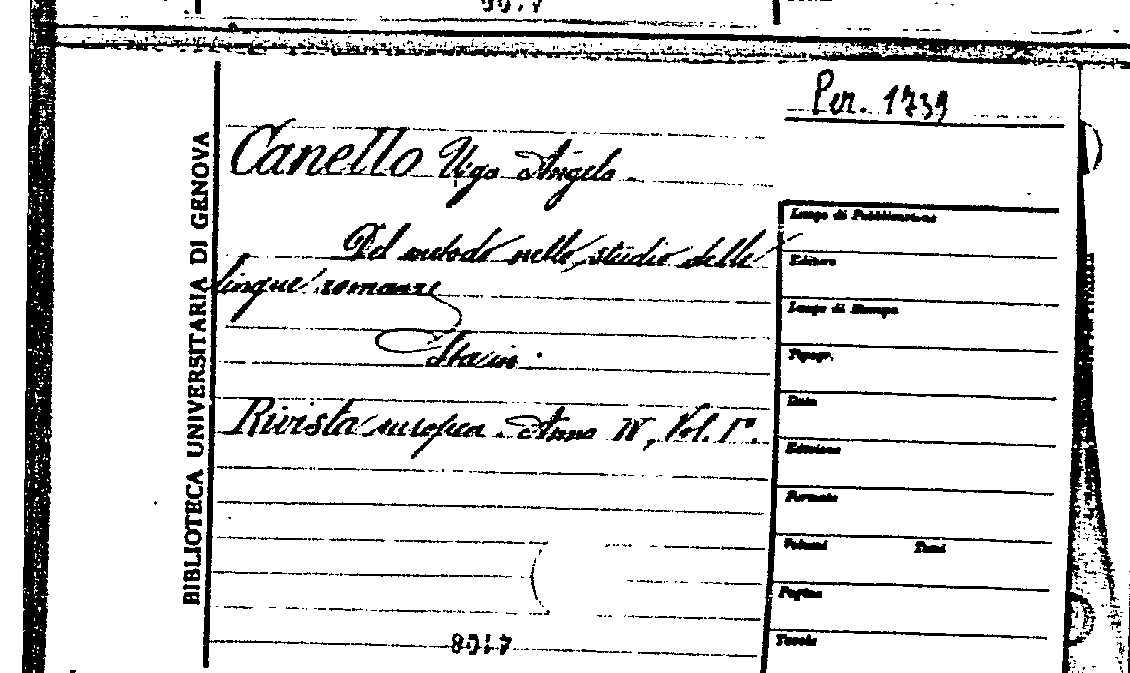 Per. 1739
BIBLIOTECA UNIVERSITARIA DI GENOVA
Canello Ugo Angelo.
Del metodo nello studio delle
lingue romanze
Sta in:
Rivista europea. Anno IV, Vol. I°.
Luogo di Pubblicazione
Editore
Luogo di Stampa
Tipogr.
Data
Edizione
Formato
Volumi Tomi
Pagine
Tavole